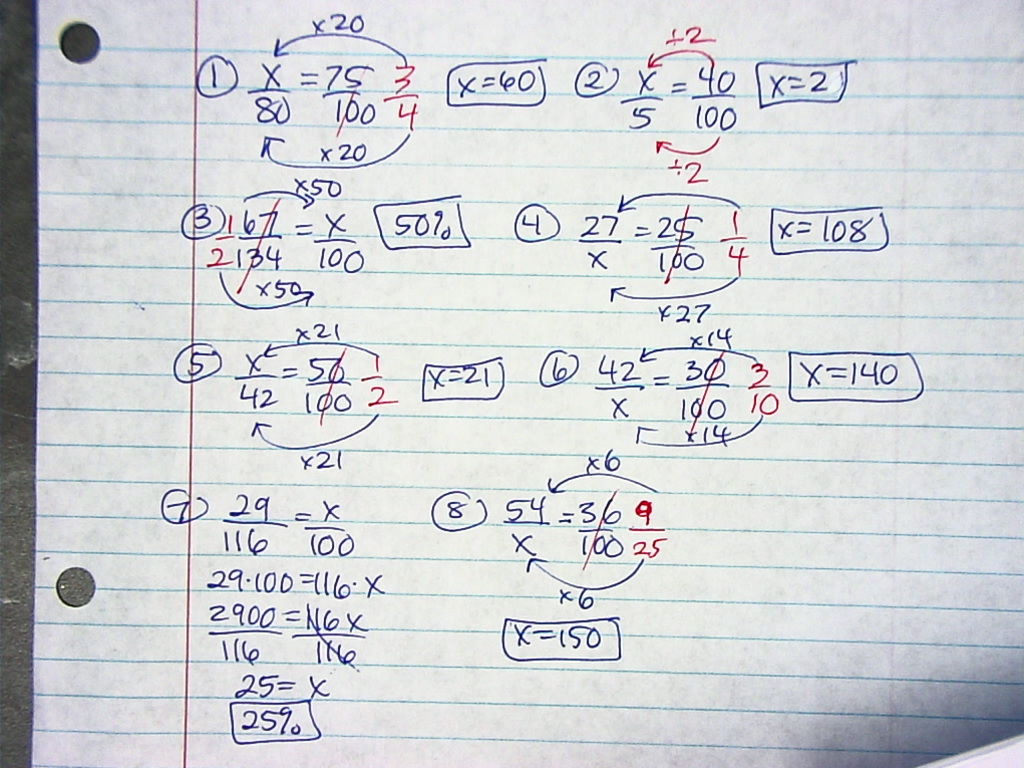 ×20
① x/80 = 75/100 3/4 x=60
×20
÷2
② x/5 = 40/100 x=2
÷2
×50
③ 1/2 67/134 = x/100 50%
×50
④ 27/x = 25/100 1/4 x=108
×27
×21
⑤ x/42 = 50/100 1/2 x=21
×21
×14
⑥ 42/x = 30/100 3/10 x=140
×14
⑦ 29/116 = x/100
29·100=116·x
2900/116 = 116x/116
25=x
25%
×6
⑧ 54/x = 36/100 9/25
×6
x=150